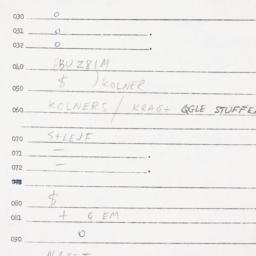 030 0
031 0 .
032 0 .
040 BUZ81M
$ ) KOLNER
050 KOLNERS / KRAG+ QGLE STUFFE
060
070 S+LEJF
071 — .
072 — .
078
080 $
081 + G EM
0
090